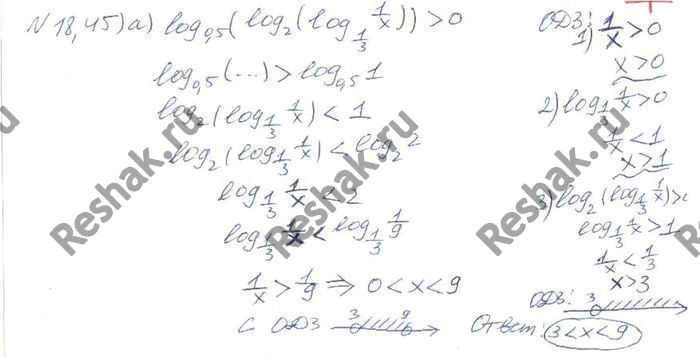 N 18,45) а) log₀,₅(log₂(log_{1/3} 1/x)) > 0
log₀,₅(...) > log₀,₅ 1
log₂(log_{1/3} 1/x) < 1
log₂(log_{1/3} 1/x) < log₂ 2
log_{1/3} 1/x < 2
log_{1/3} 1/x < log_{1/3} 1/9
1/x > 1/9 ⇒ 0 < x < 9
с ОДЗ 3 9
ОДЗ:
1) 1/x > 0
x > 0
2) log_{1/3} 1/x > 0
1/x < 1
x > 1
3) log₂(log_{1/3} 1/x) >
log_{1/3} 1/x > 1
1/x < 1/3
x > 3
ОДЗ: 3
Ответ: 3 < x < 9
Reshak.ru
Reshak.ru
Reshak.ru
Reshak.ru